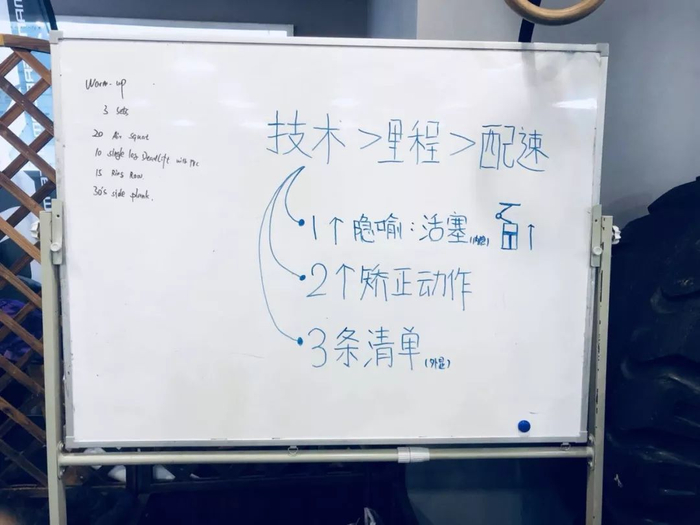 Warm-up
3 sets
20 Air squat
10 single leg Deadlift with PVC
15 Ring Row
30s side plank.
技术>里程>配速
1个隐喻:活塞(内隐) ↑
2个矫正动作
3条清单(外显)